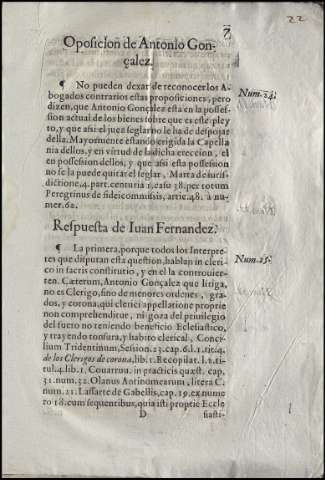 22
Oposicion de Antonio Gon-
çalez.
¶ No pueden dexar de reconocer los A-
bogados contrarios estas proposiciones, pero
dizen, que Antonio Gonçalez esta en la posses-
sion actual de los bienes sobre que es este pley
to, y que assi el juez seglar no le ha de despojar
della. Mayormente estando erigida la Capella
nia dellos, y en virtud de la dicha ereccion, el
en possession dellos, y que assi esta possession
no se la puede quitar el seglar, Marta de iuris-
dictione, 4. part. centuria 1. casu 38. per totum
Peregrinus de fideicommissis, artic. 48. à nu-
mer. 62.
Num. 24.
Respuesta de Iuan Fernandez.
¶ La primera, porque todos los Interpre
tes que disputan esta question, hablan in cleri-
co in sacris constituto, y en el controuier-
ten. Cæterum, Antonio Gonçalez que litiga,
no es Clerigo, sino de menores ordenes, gra-
dos, y corona, qui clerici appellatione proprie
non comprehenditur, ni goza del priuilegio
del fuero no teniendo beneficio Eclesiastico,
y trayendo tonsura, y habito clerical, Conci-
lium Tridentinum, Session. 23. cap. 6. l. 1. tit. 4.
de los Clerigos de corona, lib. 1. Recopilat. l. 2. ti-
tul. 4. lib. 1. Couarruu. in practicis quæst. cap.
31. num. 32. Olanus Antinomearum, litera C.
num. 21. Lassarte de Gabellis, cap. 19. ex nume
ro 18. cum sequentibus, quia isti proprie Eccle
D siasti-
Num. 25.